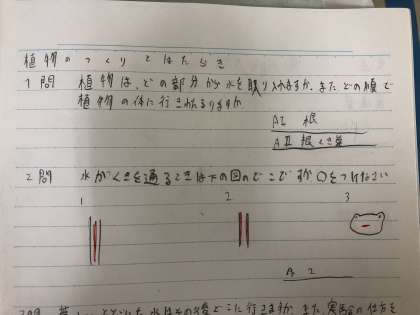 植物のつくりとはたらき
1問 植物は、どの部分から水を取り入れますか、またどの順で
植物の体に行きわたりますか
AI 根
AII 根くき葉
2問 水がくきを通るときは下の図のどこですか○をつけなさい
1 2 3
A 2
水はその後どこに行きますか また実験の仕方を